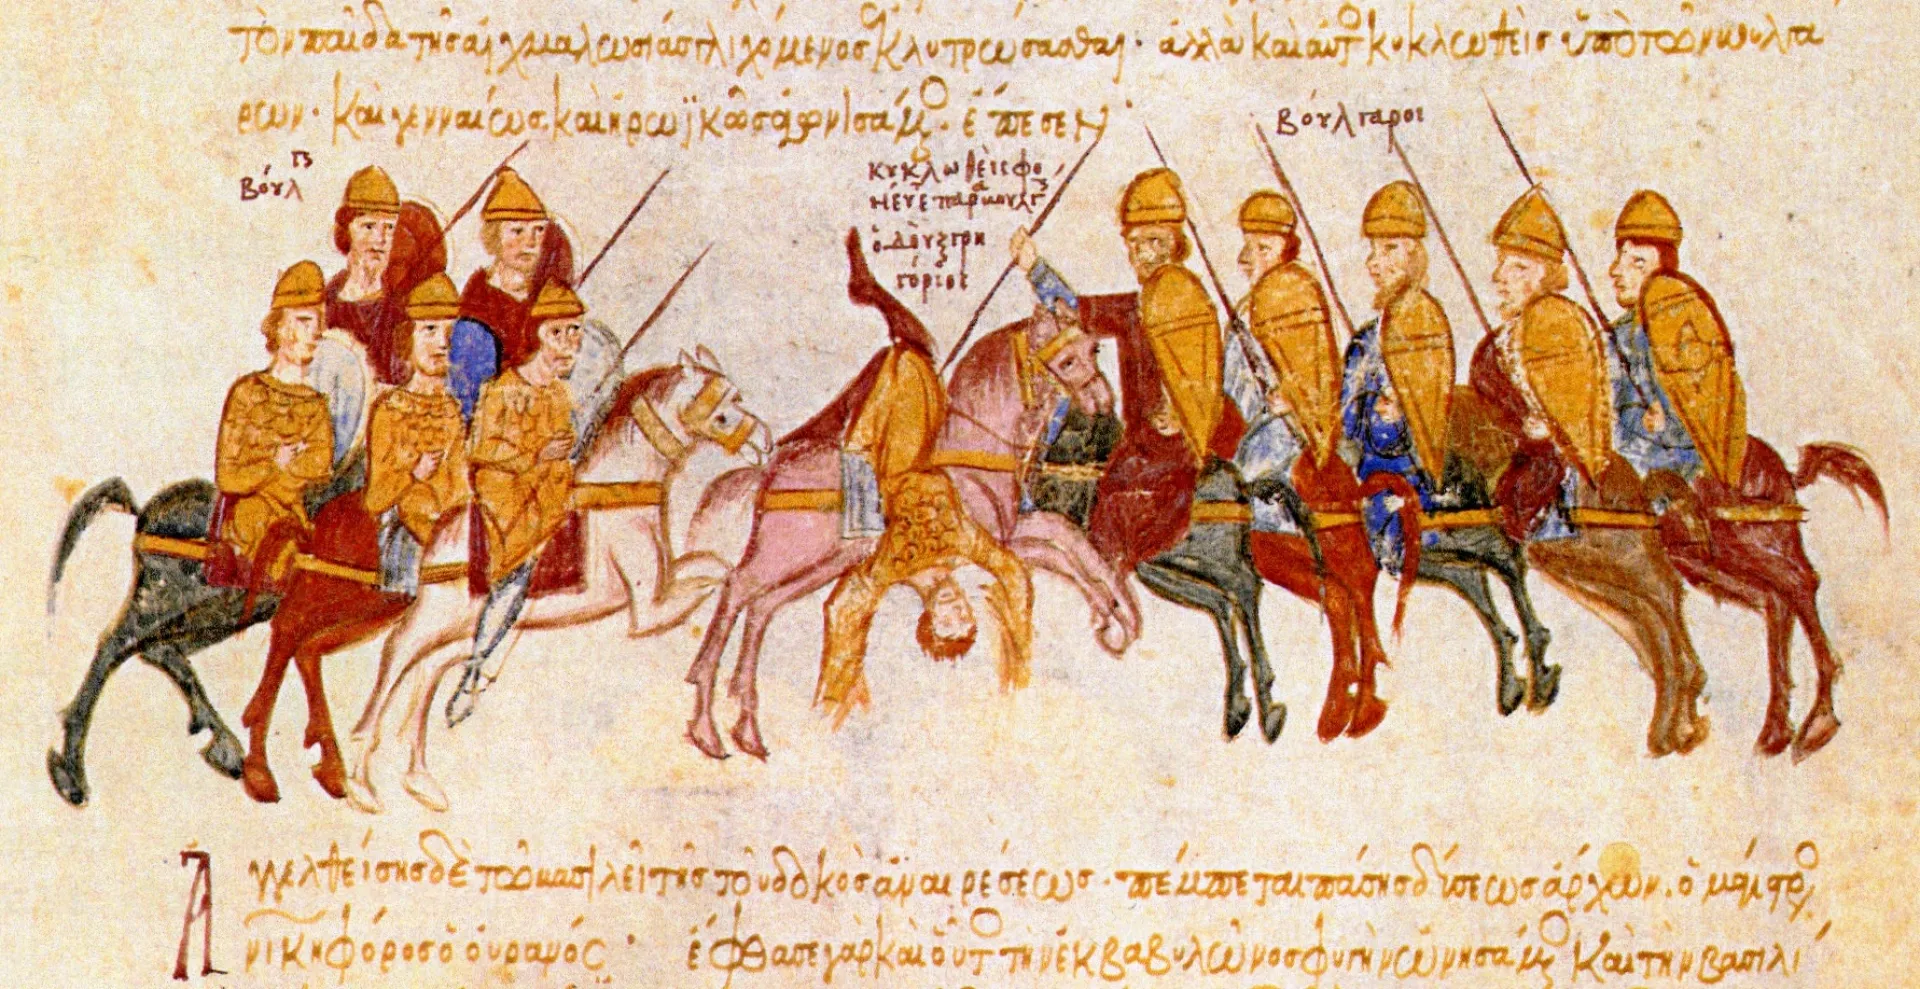 τὸν παῖδα τῆς αἰχμαλωσίας γλιχόμενος ἐκλυτρώσασθαι· ἀλλὰ καὶ αὐτὸ κυκλωθεὶς ὑπὸ τῶν βουλγά
ρων· καὶ γενναίως καὶ ἡρωϊκῶς ἀγωνισάμο· ἔπεσεν·
Βούλγ
βούλγαροι
κυκλωθεὶς φο
νεύετ παρὰ βουλγ
ὁ δοὺξ γρη
γόριος
Ἀγγελθείσης δὲ τῷ βασιλεῖ τῆς τοῦ δουκὸς ἀναιρέσεως· πέμπεται πάσης δύσεως ἄρχων, ὁ
νικηφόρος ὁ οὐρανός· ἔφθασε γὰρ καὶ οὗτο τὴν ἐκ βαβυλῶνος φυγὴν ὠνησάμο καὶ τὴν βασιλί